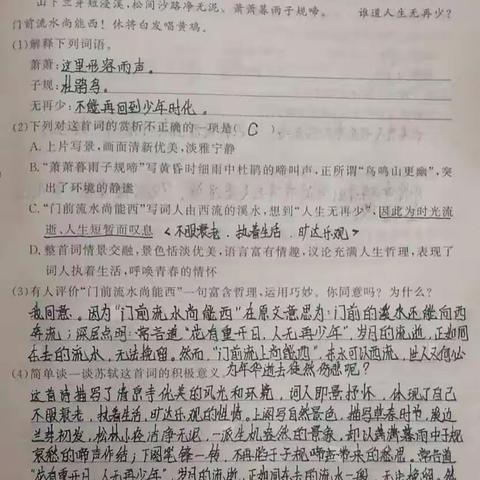 山下兰芽短浸溪,松间沙路净无泥。萧萧暮雨子规啼。 谁道人生无再少?
门前流水尚能西!休将白发唱黄鸡。
(1)解释下列词语。
萧萧:这里形容雨声。
子规:杜鹃鸟。
无再少:不能再回到少年时代。
(2)下列对这首词的赏析不正确的一项是( C )。
A.上片写景,画面清新优美,淡雅宁静
B.“萧萧暮雨子规啼”写黄昏时细雨中杜鹃的啼叫声,正所谓“鸟鸣山更幽”,突
出了环境的静谧
C.“门前流水尚能西”写词人由西流的溪水,想到“人生无再少”,因此为时光流
逝、人生短暂而叹息 <不服衰老、执着生活、旷达乐观>
D.整首词情景交融,景色恬淡优美,语言富有情趣,议论充满人生哲理,表现了
词人执着生活,呼唤青春的情怀
(3)有人评价“门前流水尚能西”一句富含哲理,运用巧妙。你同意吗?为什么?
我同意。因为“门前流水尚能西”在原文意思为:门前的溪水还能向西
奔流;深层点明:常言道“花有重开日,人无再少年”,岁月的流逝,正如同
东去的流水,无法挽留。然而,“门前流上尚能西”,东水可以西流,世人又何必
为年华逝去徒然伤悲呢?
(4)简单谈一谈苏轼这首词的积极意义。
这首诗描写了清泉寺优美的风光和环境,词人即景抒怀,体现了自己
不服衰老,执着生活,旷达乐观的性情。上阕写自然景色,描写暮春时节,溪边
兰草初发,松林小径洁净无泥,一派生机盎然的景象,却以潇潇暮雨中子规
哀愁的啼声作结;下阕笔锋一转,不再陷于子规啼声带来的愁思。常言道
“花有重开日,人无再少年”,岁月的流逝,正如同东去的流水一般,无法挽留。然